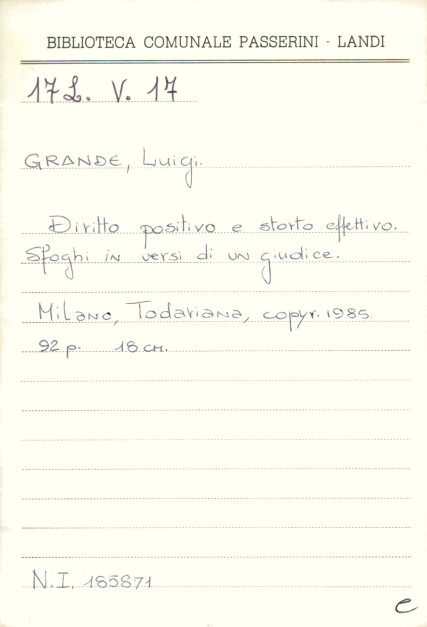 BIBLIOTECA COMUNALE PASSERINI - LANDI
17 L. V. 17
GRANDE, Luigi.
Diritto positivo e storto effettivo.
Sfoghi in versi di un giudice.
Milano, Todariana, copyr. 1985.
92 p. 18 cm.
N.I. 185871
e